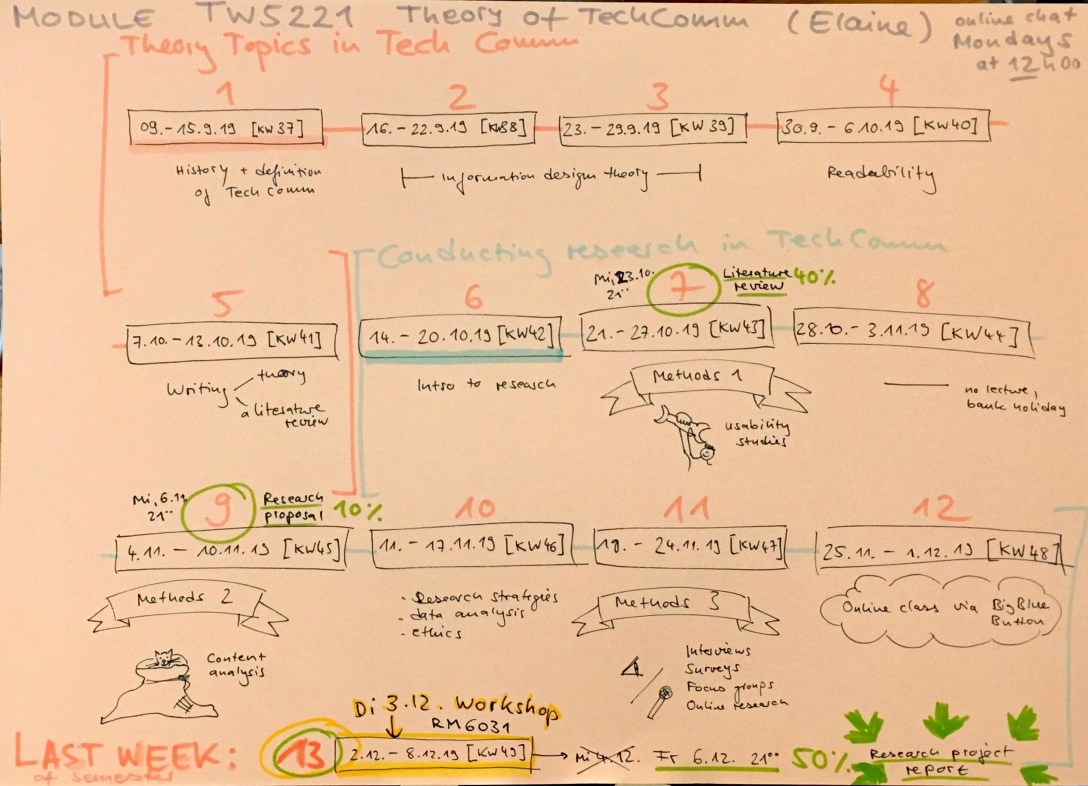 MODULE TW5221 Theory of TechComm (Elaine)
online chat
Mondays
at 12h00
Theory Topics in Tech Comm
1
09.-15.9.19 [KW37]
History + definition
of Tech Comm
2
16.-22.9.19 [KW38]
3
23.-29.9.19 [KW39]
Information design theory
4
30.9.-6.10.19 [KW40]
Readability
Conducting research in TechComm
5
7.10.-13.10.19 [KW41]
Writing
theory
a literature
review
6
14.-20.10.19 [KW42]
Intro to research
Mi, 23.10.
21⁰⁰
7
Literature
review 40%
21.-27.10.19 [KW43]
Methods 1
usability
studies
8
28.10.-3.11.19 [KW44]
no lecture,
bank holiday
Mi, 6.11
21⁰⁰
9
Research
proposal 10%
4.11.-10.11.19 [KW45]
Methods 2
Content
analysis
10
11.-17.11.19 [KW46]
· Research strategies
· data analysis
· ethics
11
18.-24.11.19 [KW47]
Methods 3
Interviews
Surveys
Focus groups
Online research
12
25.11.-1.12.19 [KW48]
Online class via BigBlue
Button
Di 3.12. Workshop
RM6031
LAST WEEK:
of semester
13
2.12.-8.12.19 [KW49]
Mi 4.12. Fr 6.12. 21⁰⁰ 50%
Research project
report